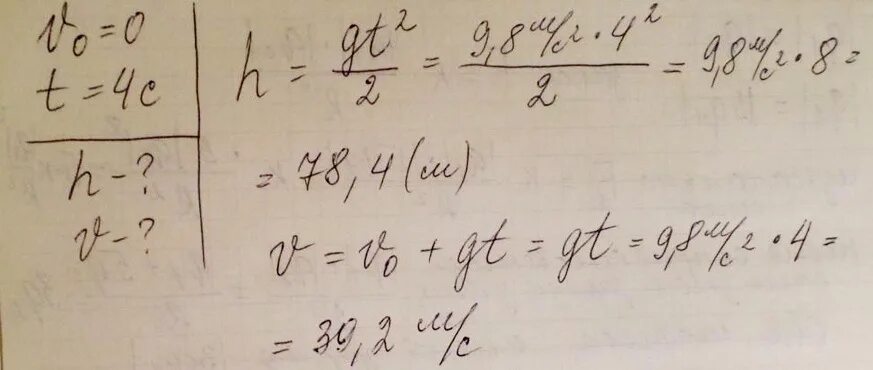 v₀ = 0
t = 4с
h - ?
v - ?
h = gt²/2 = 9,8 м/с² · 4²/2 = 9,8 м/с² · 8 =
= 78,4 (м)
v = v₀ + gt = gt = 9,8 м/с² · 4 =
= 39,2 м/с